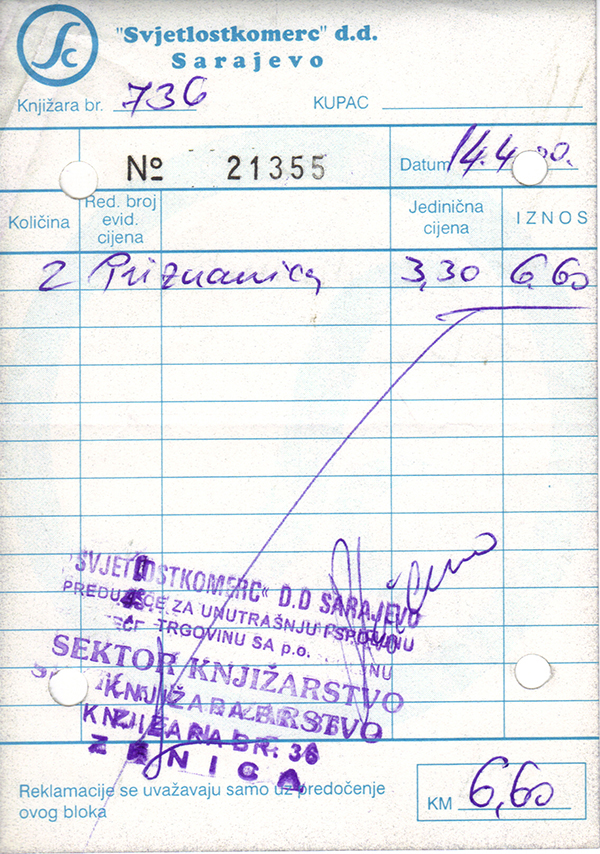 Sc
"Svjetlostkomerc" d.d.
Sarajevo
Knjižara br. 736
KUPAC
№ 21355
Datum 14.4.00.
Količina
Red. broj evid. cijena
Jedinična cijena
IZNOS
2 Priznanica 3,30 6,60
"SVJETLOSTKOMERC" D.D SARAJEVO
PREDUZEĆE ZA UNUTRAŠNJU I SPOLJNU
TRGOVINU SA p.o.
SEKTOR KNJIŽARSTVO
KNJIŽARA BR. 36
ZENICA
Reklamacije se uvažavaju samo uz predočenje
ovog bloka
KM 6,60